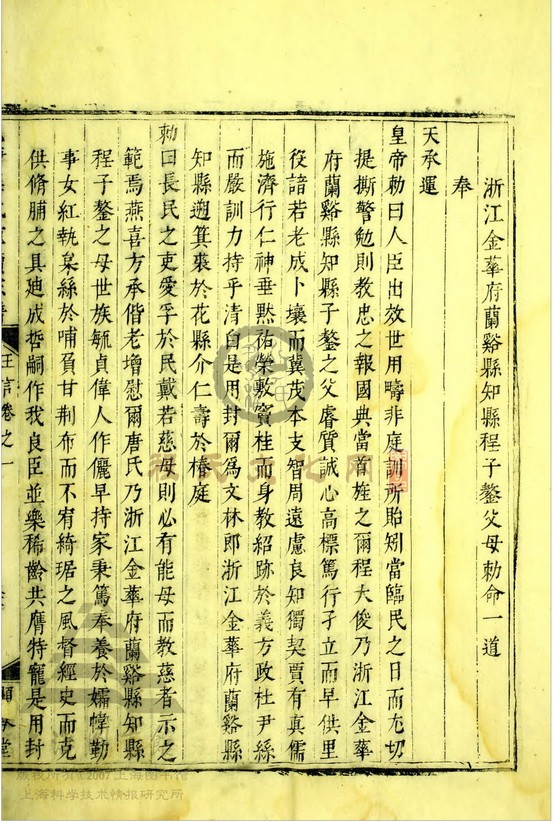 浙江金華府蘭谿縣知縣程子鏊父母勅命一道
奉
天承運
皇帝勅曰人臣出效世用疇非庭訓所貽矧當臨民之日而尤切
提撕警勉則教忠之報國典當首旌之爾程大俊乃浙江金華
府蘭谿縣知縣子鏊之父睿質誠心高標篤行孑立而早供里
役諳若老成卜壤而冀茂本支智周遠慮良知獨契賈有真儒
施濟行仁神垂黙祐榮敷竇桂而身教紹跡於義方政杜尹絲
而嚴訓力持乎清白是用封爾爲文林郎浙江金華府蘭谿縣
知縣遡箕裘於花縣介仁壽於椿庭
勅曰長民之吏愛孚於民戴若慈母則必有能母而教慈者示之
範焉燕喜方承偕老增慰爾唐氏乃浙江金華府蘭谿縣知縣
程子鏊之母世族毓貞偉人作儷早持家秉篤奉養於孀幃勤
事女紅執枲絲於哺負甘荆布而不宥綺琚之風督經史而克
供脩脯之具廸成哲嗣作我良臣並樂稀齡共膺特寵是用封
王言卷之一
程氏文化网
版权所有©2007上海图书馆
上海科学技术情报研究所